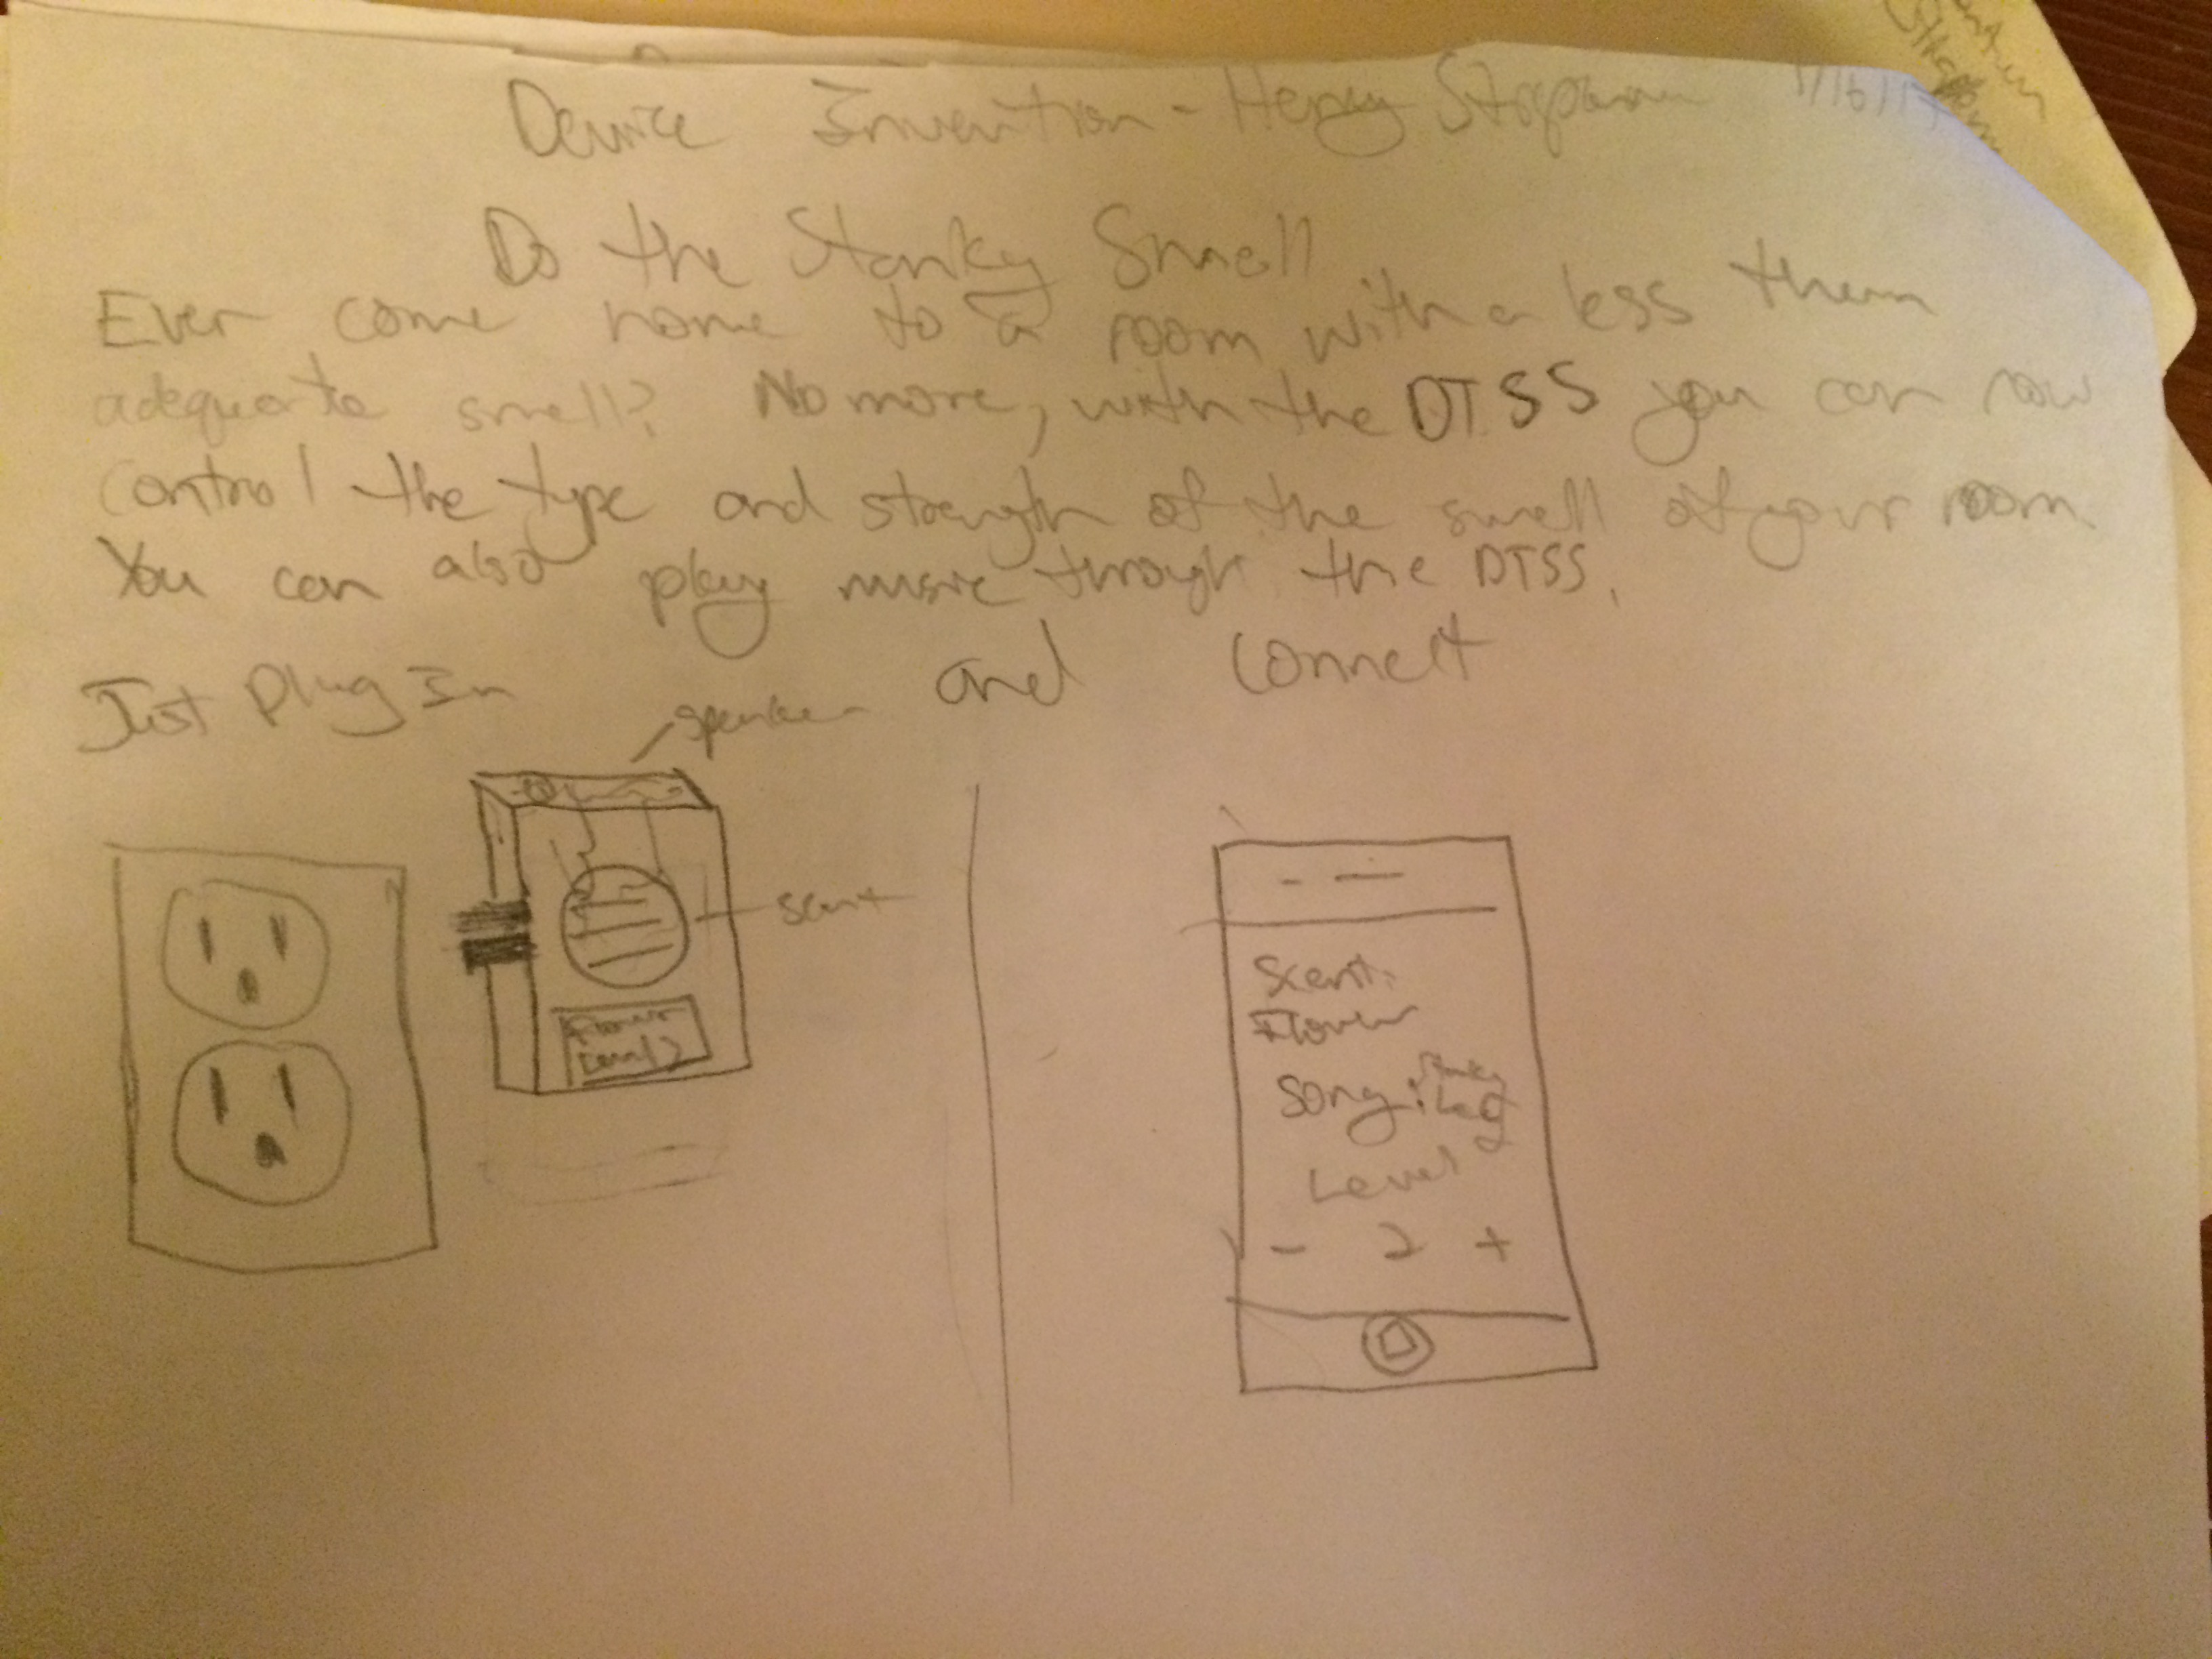 Device Invention - Henry 1/16/17
Do the Stanky Smell
Ever come home to a room with a less then
adequate smell? No more, with the DTSS you can now
control the type and strength of the smell of your room
You can also play music through the DTSS.
Just Plug In and connect
speaker
scent
Flower
Level 2
Scent:
Flower
Song: Stanky
Leg
Level
- 2 +